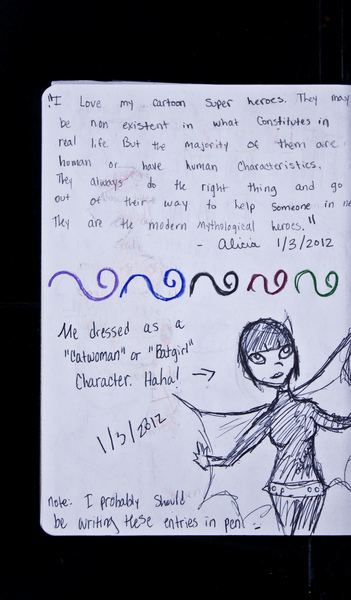 "I Love my cartoon super heroes. They may
be non existent in what constitutes in
real life But the majority of them are
human or have human characteristics.
They always do the right thing and go
out of their way to help someone in ne
They are the modern mythological heroes."
- Alicia 1/3/2012
Me dressed as a
"Catwoman" or "Batgirl"
Character. Haha! →
1/3/2012
note: I probably should
be writing these entries in pen!